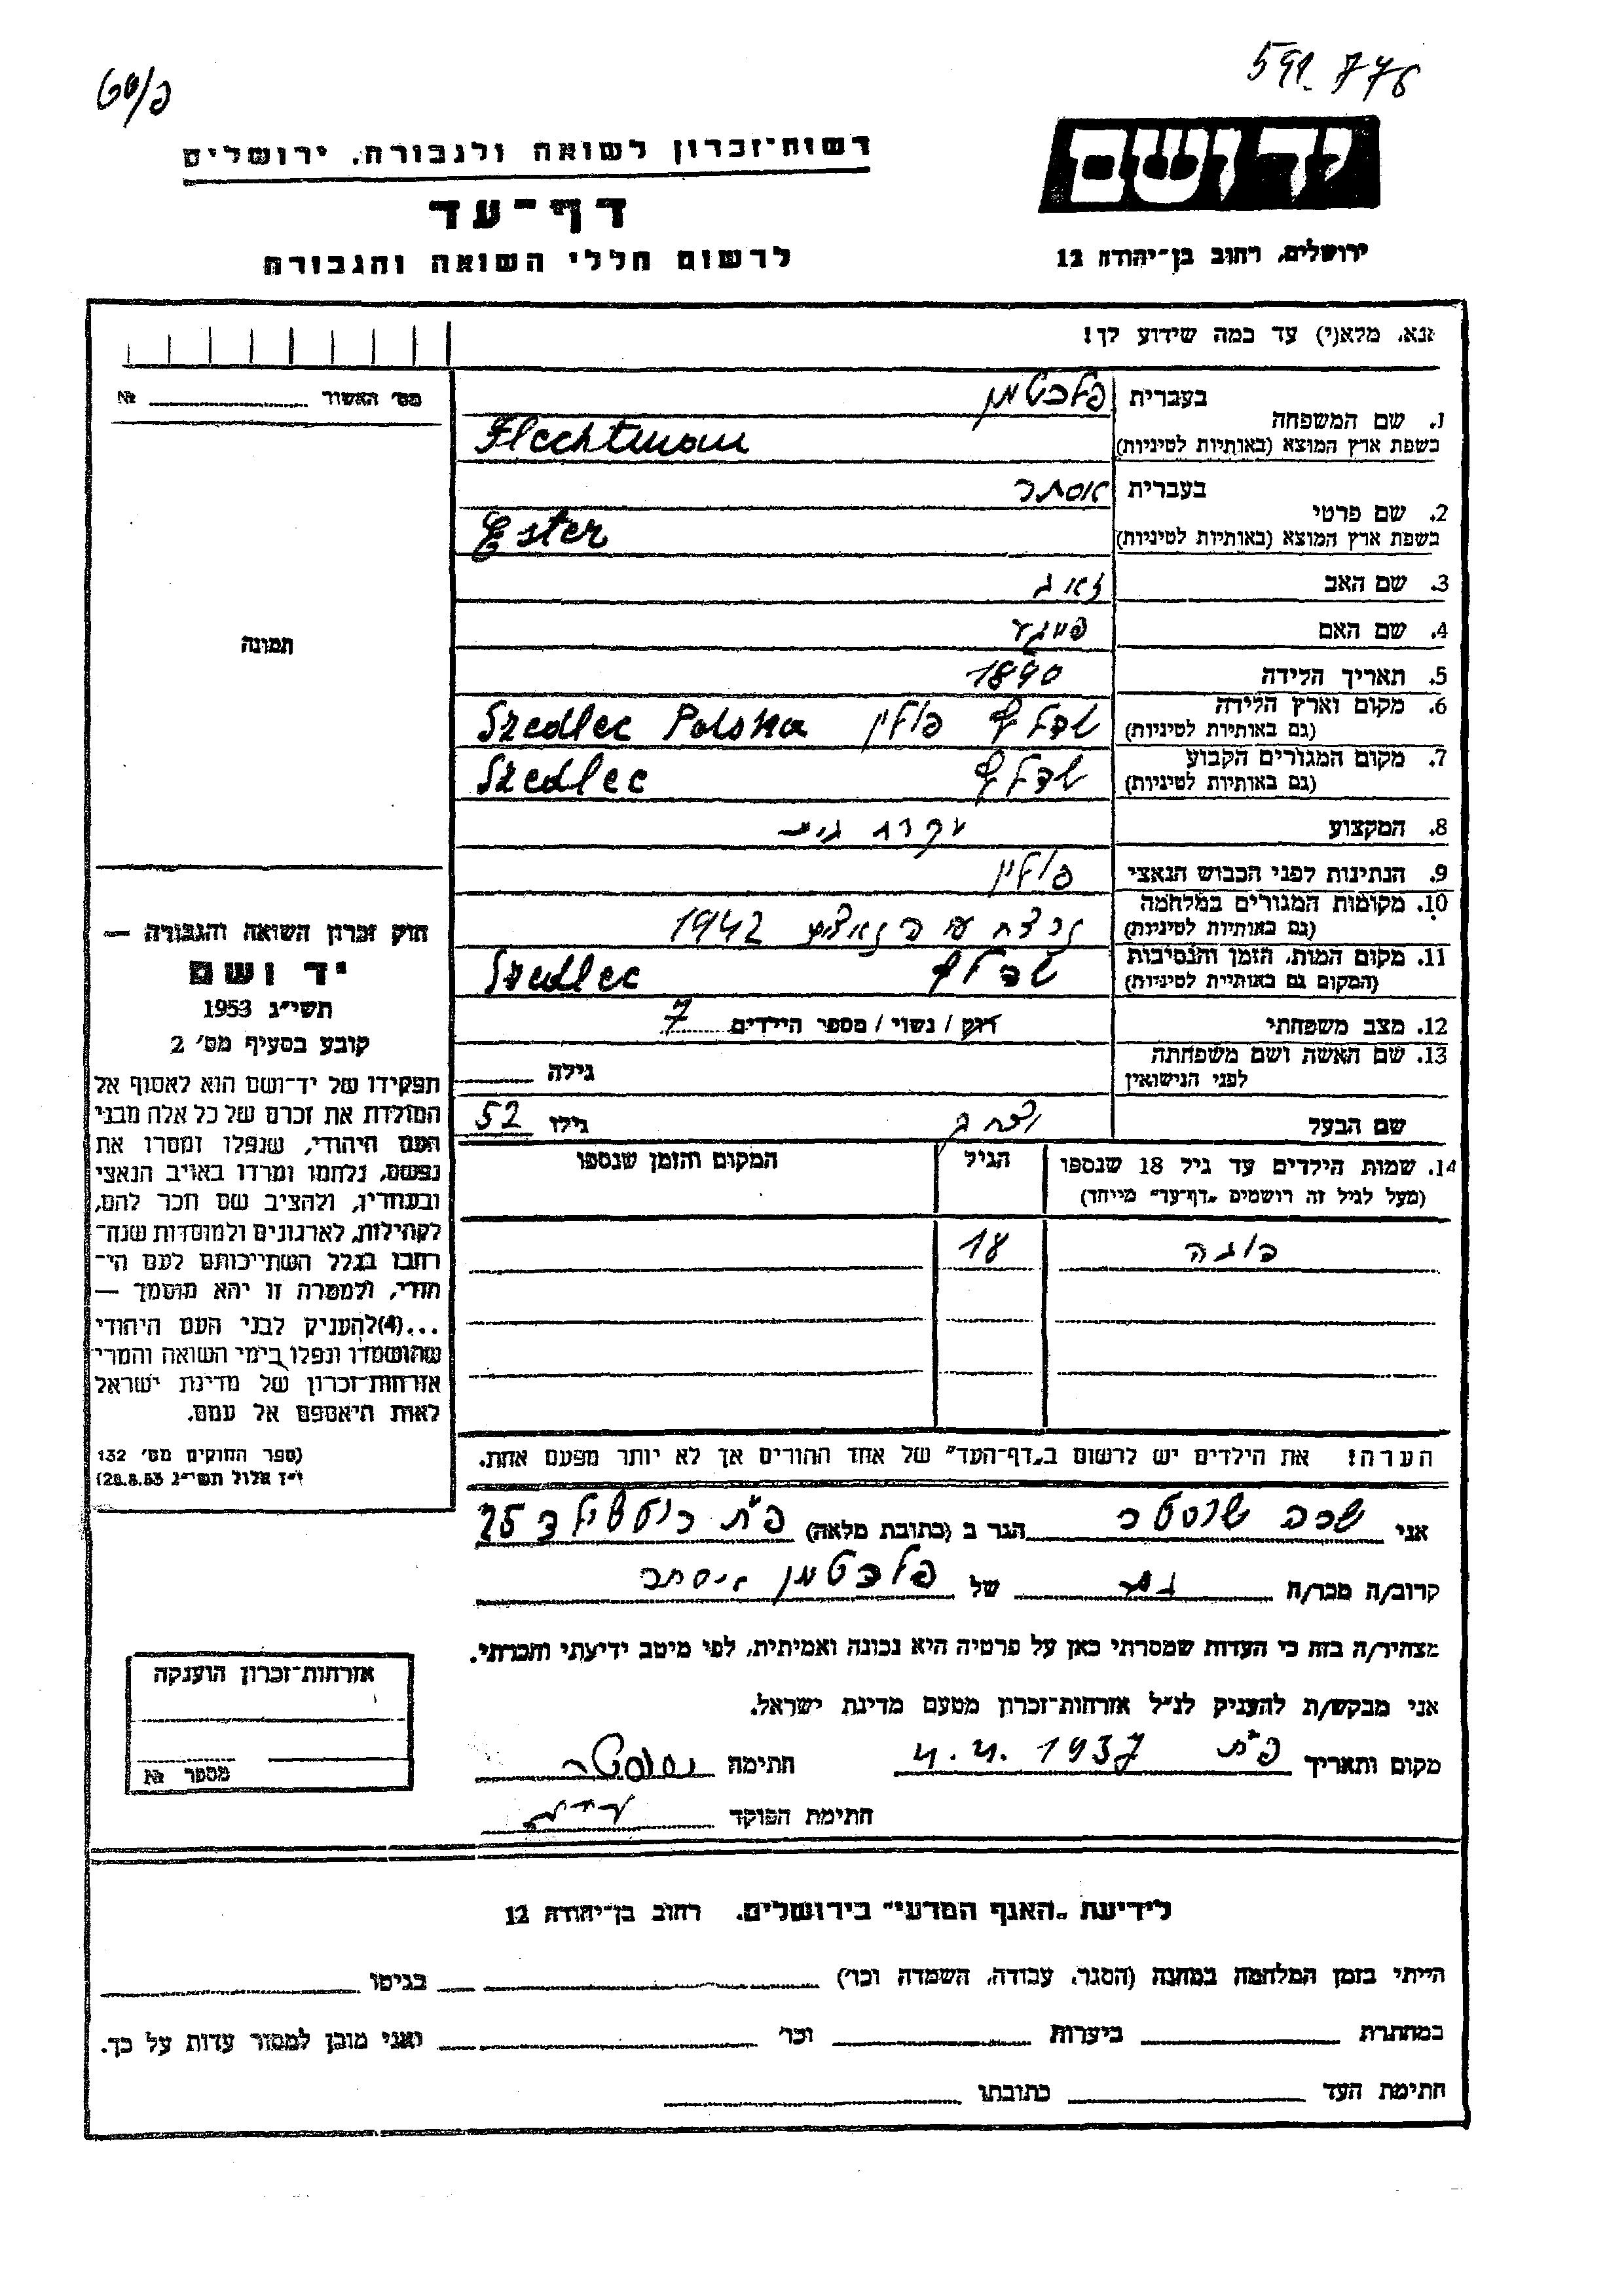 פ/60
591.776
יד ושם
ירושלים, רחוב בן־יהודה 12
רשות־זכרון לשואה ולגבורה, ירושלים
דף־עד
לרשום חללי השואה והגבורה
נא, מלא(י) עד כמה שידוע לך!
1. שם המשפחה
בעברית פלכטמן
בשפת ארץ המוצא (באותיות לטיניות) Flechtman
2. שם פרטי
בעברית אסתר
בשפת ארץ המוצא (באותיות לטיניות) Ester
3. שם האב
4. שם האם
5. תאריך הלידה 1890
6. מקום וארץ הלידה (גם באותיות לטיניות) שדלץ פולין Szedlec Polska
7. מקום המגורים הקבוע (גם באותיות לטיניות) שדלץ Szedlec
8. המקצוע עקרת בית
9. הנתינות לפני הכבוש הנאצי פולין
10. מקומות המגורים במלחמה (גם באותיות לטיניות) נרצח ע הנאצים 1942
11. מקום המות, הזמן והנסיבות (המקום גם באותיות לטיניות) שדלץ Szedlec
12. מצב משפחתי רווק / נשוי / מספר הילדים 7
13. שם האשה ושם משפחתה לפני הנישואין
גילה
שם הבעל יצחק גילו 52
14. שמות הילדים עד גיל 18 שנספו (מעל לגיל זה רושמים "דף־עד" מיוחד)
הגיל
המקום והזמן שנספו
18
הערה! את הילדים יש לרשום ב"דף־העד" של אחד ההורים אך לא יותר מפעם אחת.
אני שרה שוסטר הגר ב (כתובת מלאה) פ"ת רוטשילד 25
קרוב/ה מכר/ה של פלכטמן איסתר
מצהיר/ה בזה כי העדות שמסרתי כאן על פרטיה היא נכונה ואמיתית, לפי מיטב ידיעתי והכרתי.
אני מבקש/ת להעניק לנ"ל אזרחות־זכרון מטעם מדינת ישראל.
מקום ותאריך פ"ת 1957 חתימה שוסטר
חתימת הפוקד
מס' האשור №
תמונה
חוק זכרון השואה והגבורה —
יד ושם
תשי"ג 1953
קובע בסעיף מס' 2
תפקידו של יד־ושם הוא לאסוף אל
המולדת את זכרם של כל אלה מבני
העם היהודי, שנפלו ומסרו את
נפשם, נלחמו ומרדו באויב הנאצי
ובעוזריו, ולהציב שם וזכר להם,
לקהילות, לארגונים ולמוסדות שנח־
רבו בגלל השתייכותם לעם הי־
הודי, ולמטרה זו יהא מוסמך —
...(4)להעניק לבני העם היהודי
שהושמדו ונפלו בימי השואה והמרי
אזרחות־זכרון של מדינת ישראל
לאות היאספם אל עמם.
(ספר החוקים מס' 132
י"ז אלול תשי"ג 28.8.53)
אזרחות־זכרון הוענקה
מספר №
לידיעת "האגף המדעי" בירושלים, רחוב בן־יהודה 12
הייתי בזמן המלחמה במחנה (הסגר, עבודה, השמדה וכו') בגיטו
במחתרת ביערות וכו' ואני מוכן למסור עדות על כך.
חתימת העד כתובתו